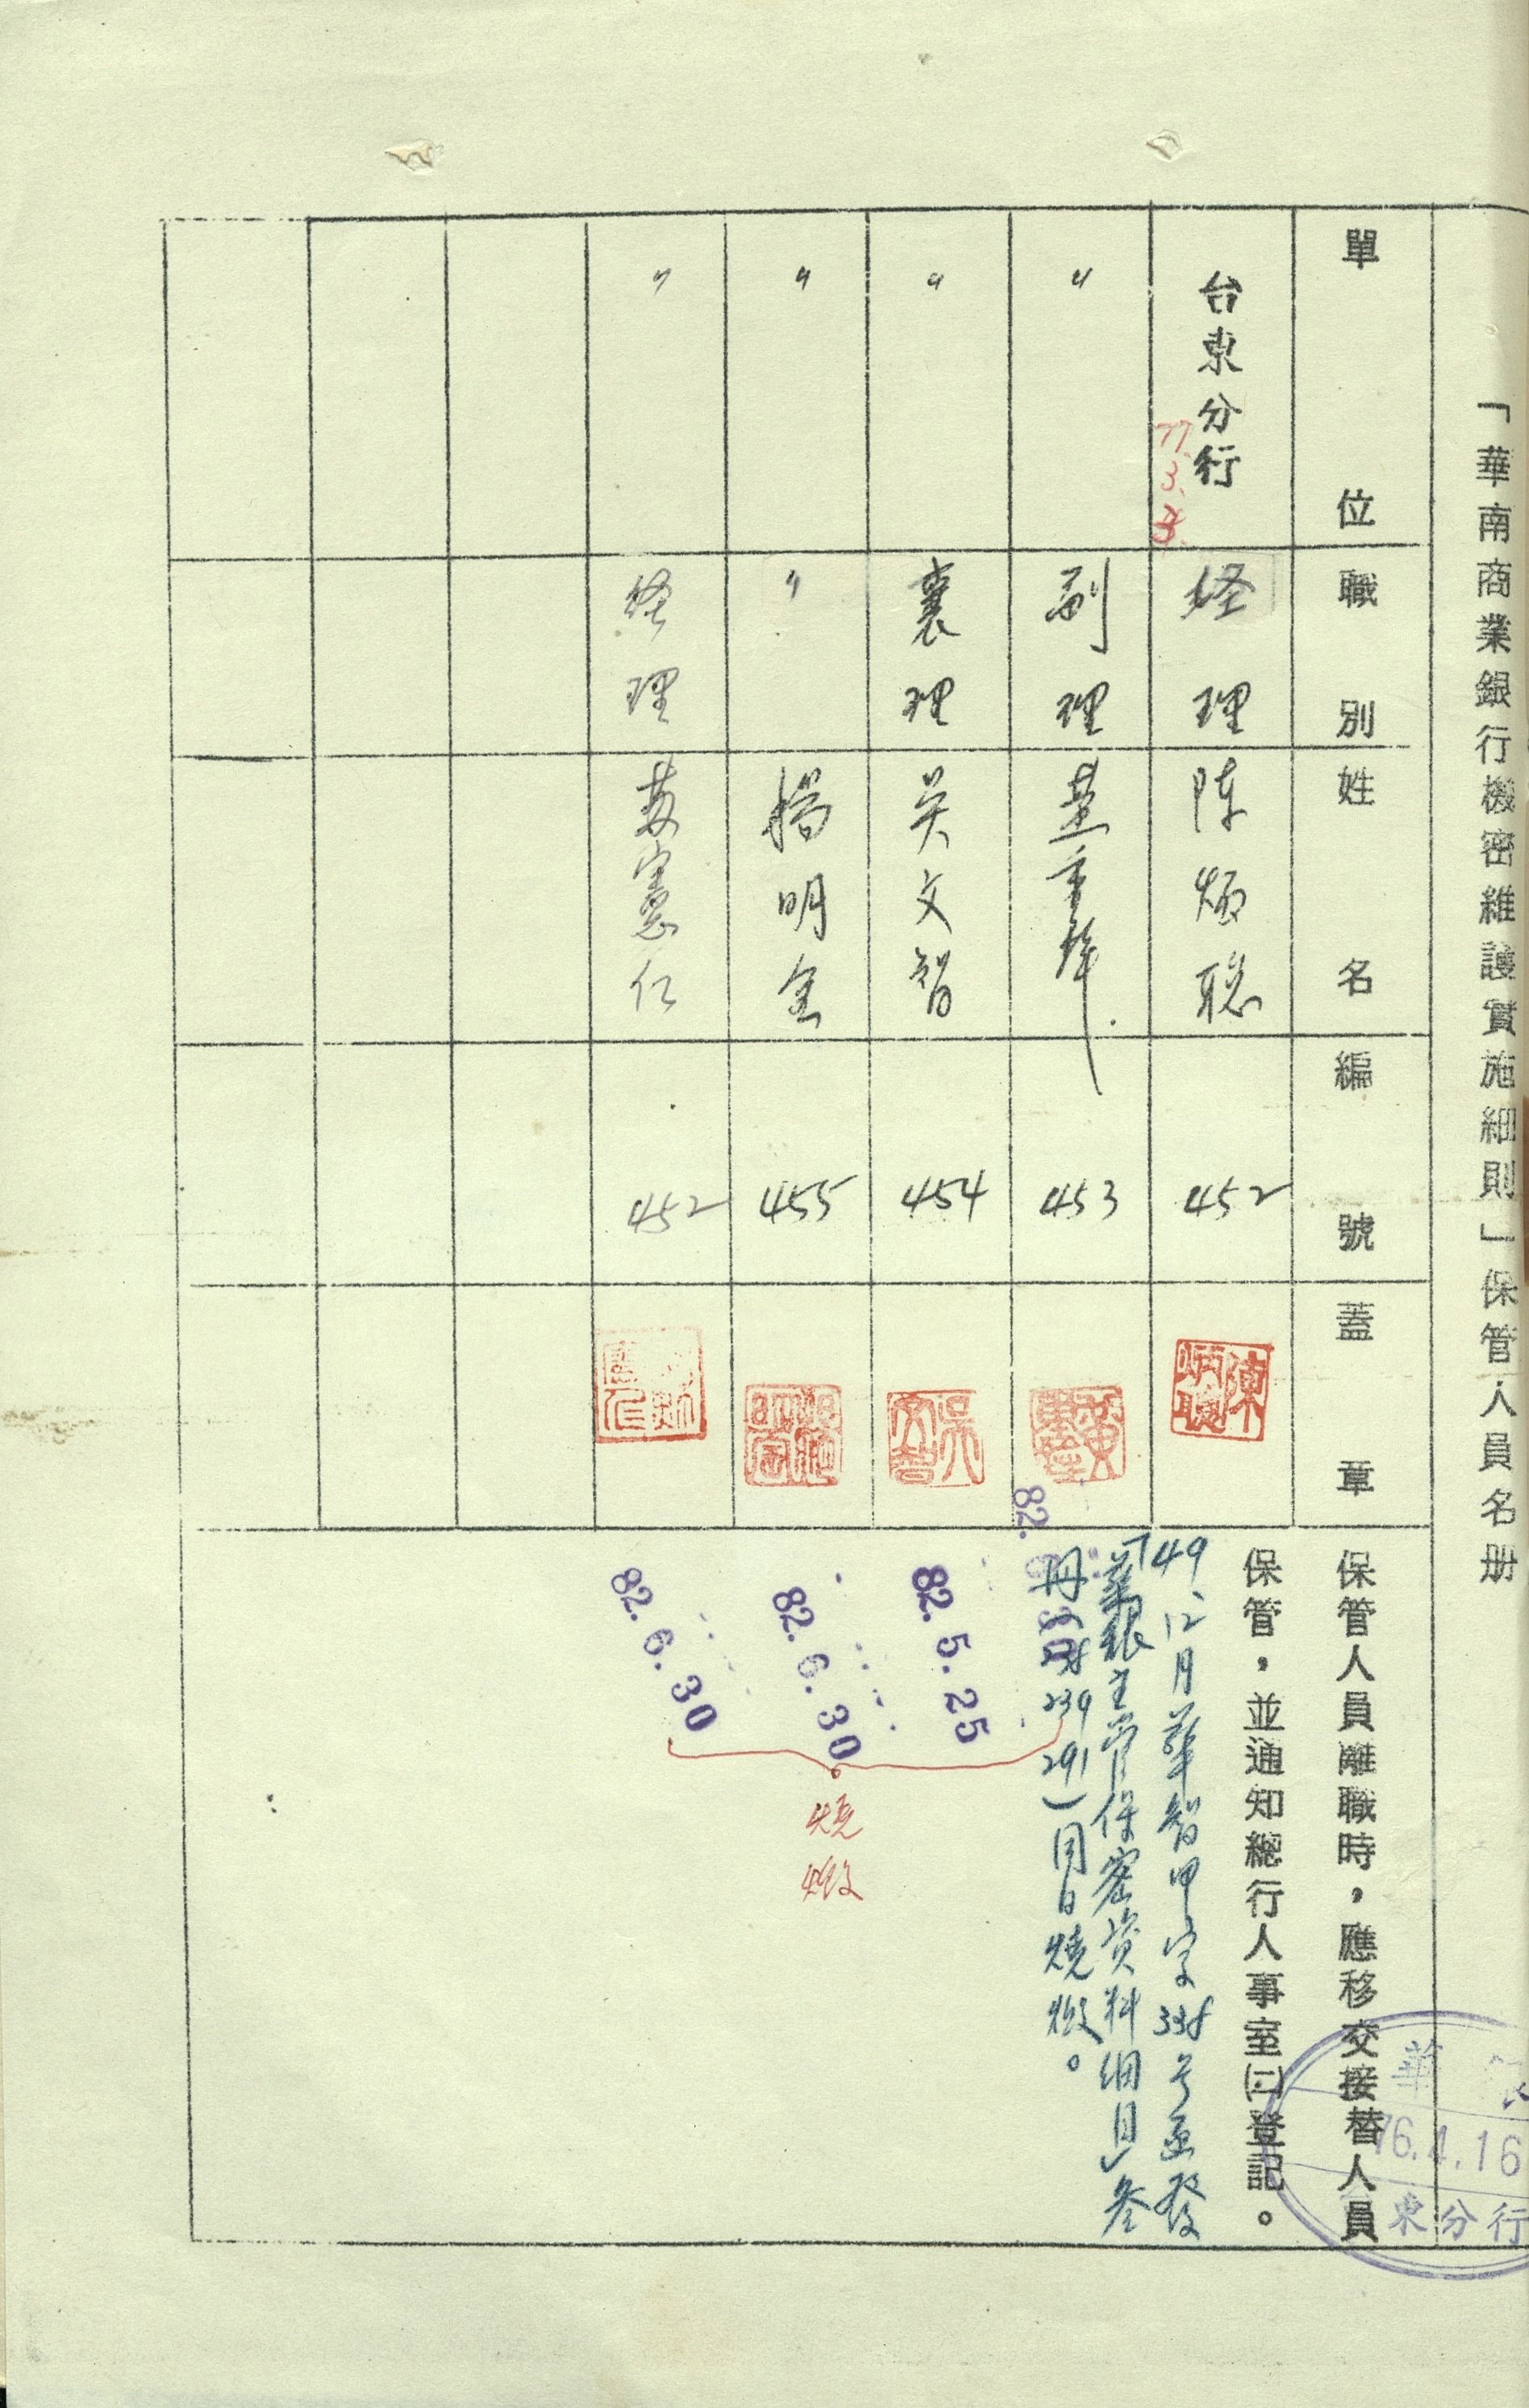 「華南商業銀行機密維護實施細則」保管人員名册
單位
職別
姓名
編號
蓋章
保管人員離職時，應移交接替人員
保管，並通知總行人事室㈡登記。
台東分行
77.3.
経理
陳炳聡
452
陳炳聰
〃
副理
453
黄
〃
襄理
吴文智
454
吳文智
〃
〃
楊明
455
〃
経理
蘇憲仁
452
49、12月華智甲字33号函發
「華銀主管保密資料細目」叁
冊
239
291）同日燒燬。
82.
82.5.25
82.6.30
82.6.30
燒燬
華
76.4.16
東分行